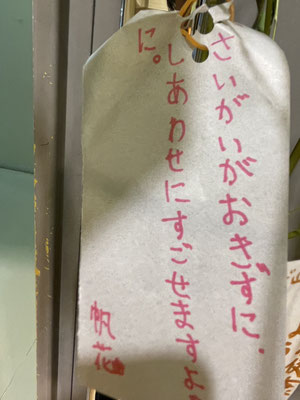 さいがいがおきずに、
しあわせにすごせますよ
に。